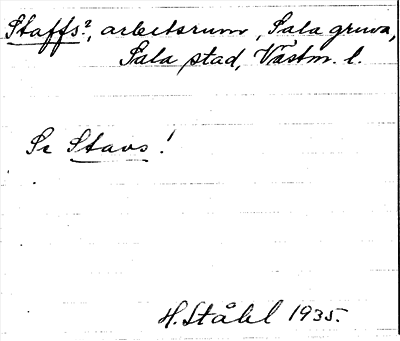 Staffs?, arbetsrum, Sala gruva,
Sala stad, Västm. l.
Se Stavs!
H. Ståhl 1935.